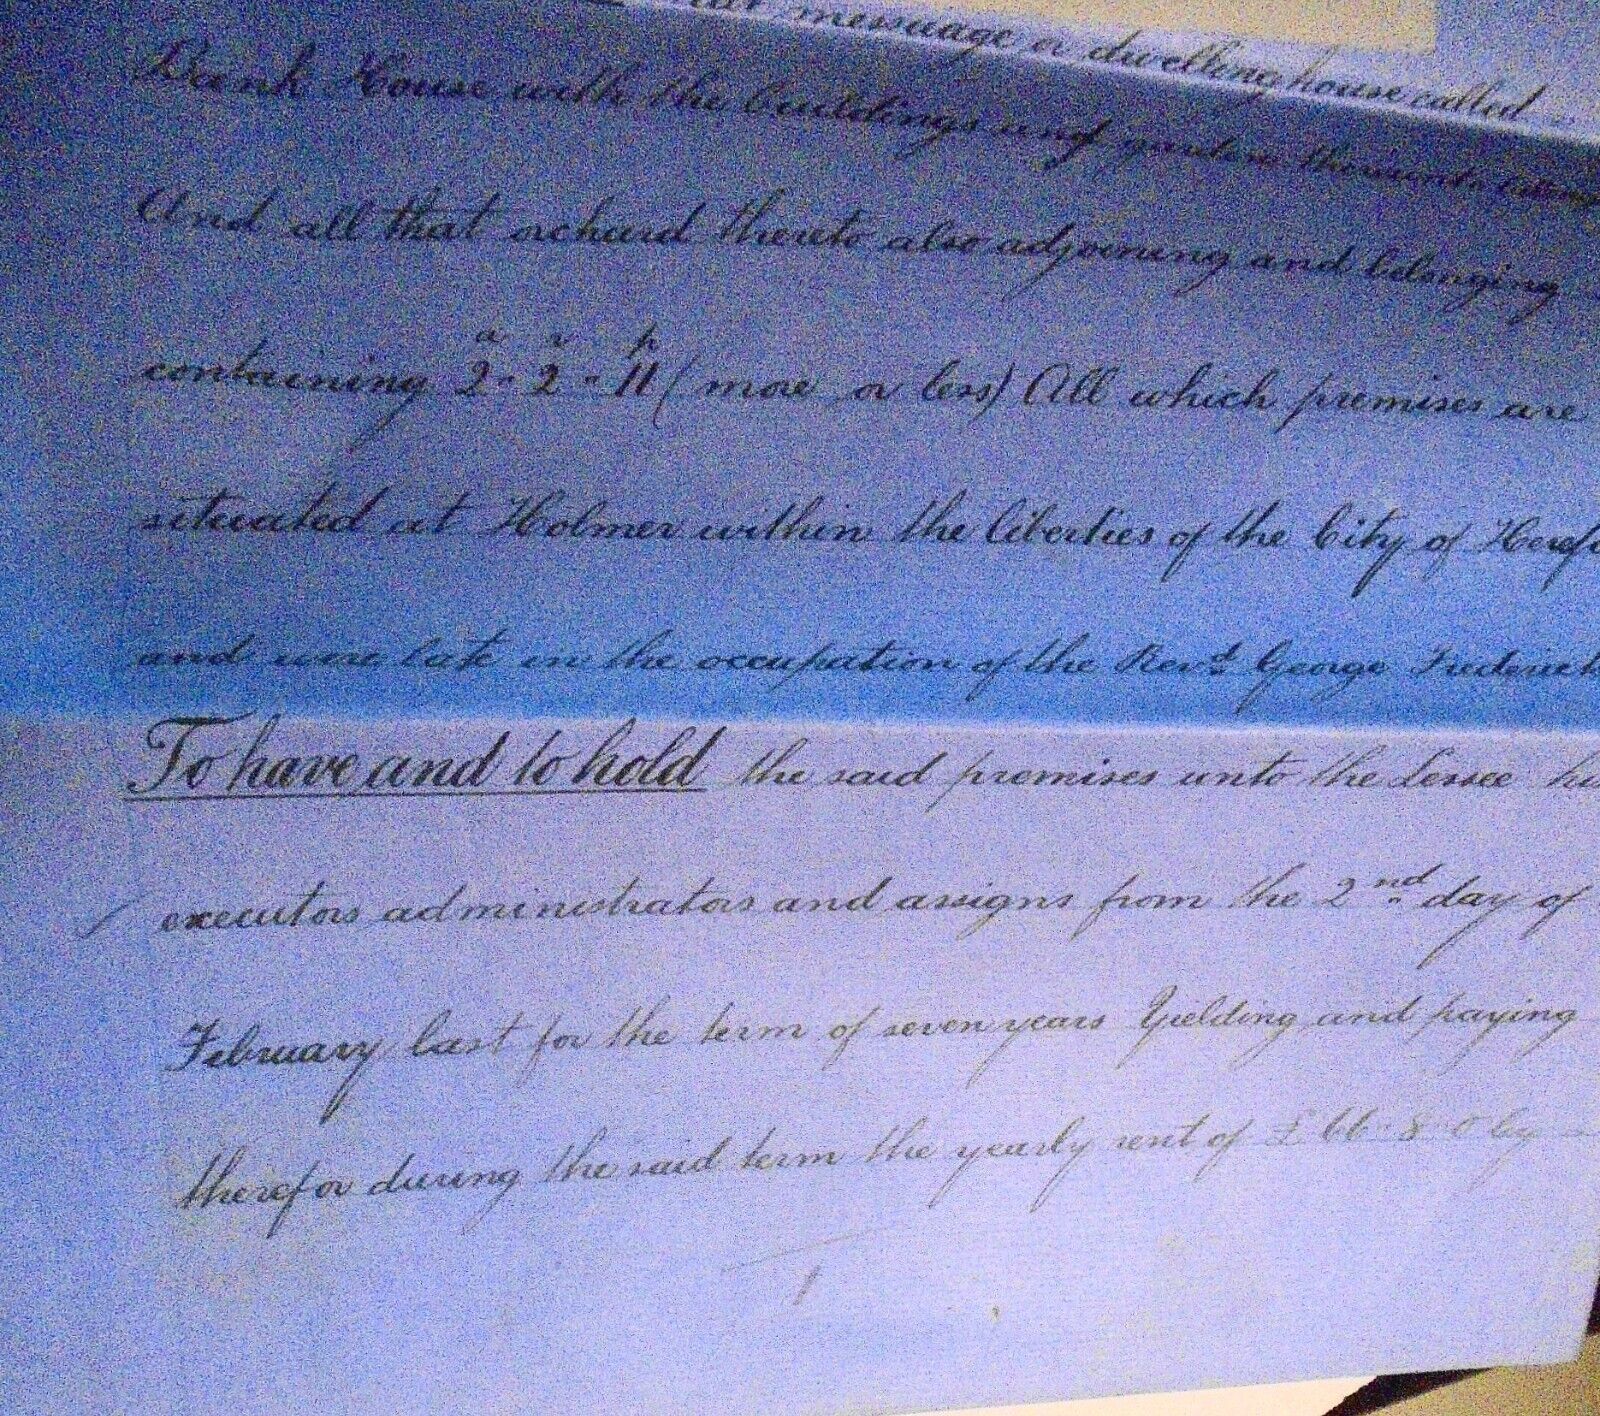 messuage or dwelling house called
Bank House with the buildings and garden thereunto
And all that orchard thereto also adjoining and belonging
containing 2a - 2r - 11p (more or less) All which premises are
situated at Holmer within the liberties of the City of Heref
and were late in the occupation of the Revd. George Frederick
To have and to hold the said premises unto the Lessee his
executors administrators and assigns from the 2nd day of
February last for the term of seven years Yielding and paying
therefor during the said term the yearly rent of £66-8-0 by
1